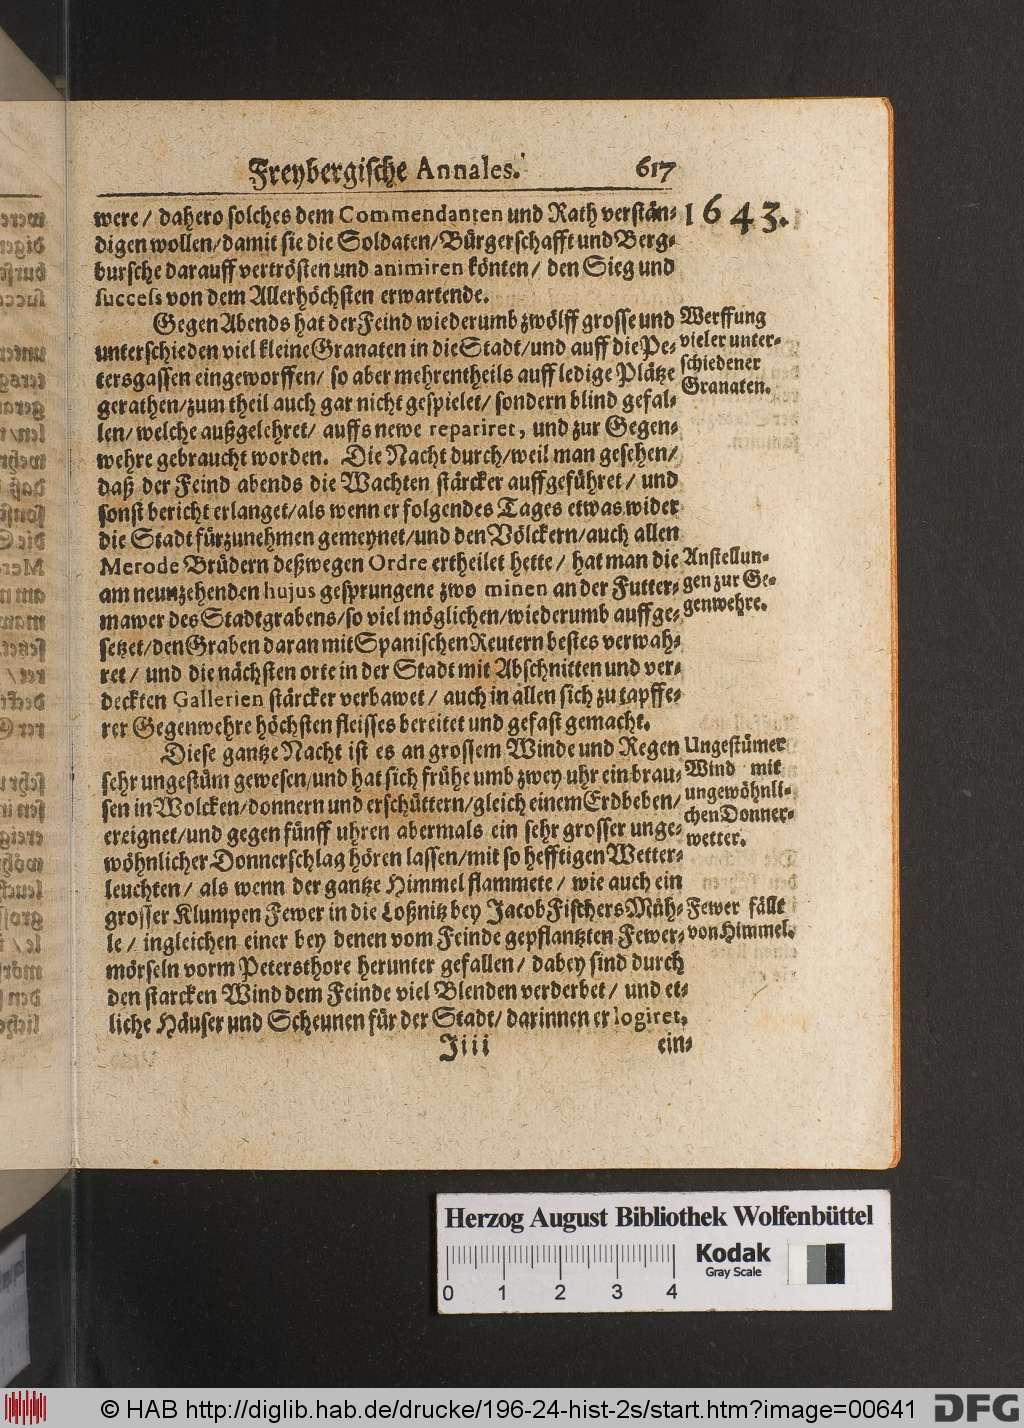 Freybergische Annales. 617
1643.
were / dahero solches dem Commendanten und Rath verstän-
digen wollen/damit sie die Soldaten/Bürgerschafft und Berg-
bursche darauff vertrösten und animiren könten/ den Sieg und
success von dem Allerhöchsten erwartende.
Gegen Abends hat der Feind wiederumb zwölff grosse und
unterschieden viel kleine Granaten in die Stadt/und auff die Pe-
tersgassen eingeworffen/ so aber mehrentheils auff ledige Plätze
gerathen/zum theil auch gar nicht gespielet/ sondern blind gefal-
len/welche außgelehret/ auffs newe repariret, und zur Gegen-
wehre gebraucht worden. Die Nacht durch/weil man gesehen/
daß der Feind abends die Wachten stärcker auffgeführet/ und
sonst bericht erlanget/als wenn er folgendes Tages etwas wider
die Stadt fürzunehmen gemeynet/und den Völckern/auch allen
Merode Brüdern deßwegen Ordre ertheilet hette/ hat man die
am neunzehenden hujus gesprungene zwo minen an der Futter-
mawer des Stadtgrabens/so viel möglichen/wiederumb auffge-
setzet/den Graben daran mit Spanischen Reutern bestes verwah-
ret/ und die nächsten orte in der Stadt mit Abschnitten und ver-
deckten Gallerien stärcker verbawet/ auch in allen sich zu tapffe-
rer Gegenwehre höchsten fleisses bereitet und gefast gemacht.
Diese gantze Nacht ist es an grossem Winde und Regen
sehr ungestüm gewesen/und hat sich frühe umb zwey uhr ein brau-
sen in Wolcken/donnern und erschüttern/gleich einem Erdbeben/
ereignet/und gegen fünff uhren abermals ein sehr grosser unge-
wöhnlicher Donnerschlag hören lassen/mit so hefftigen Wetter-
leuchten/ als wenn der gantze Himmel flammete/ wie auch ein
grosser Klumpen Fewer in die Loßnitz bey Jacob Fischers Müh-
le/ ingleichen einer bey denen vom Feinde gepflantzten Fewer-
mörseln vorm Petersthore herunter gefallen/ dabey sind durch
den starcken Wind dem Feinde viel Blenden verderbet/ und et-
liche Häuser und Scheunen für der Stadt/ darinnen er logiret,
Jiii ein-
Werffung
vieler unter-
schiedener
Granaten.
Anstellun-
gen zur Ge-
genwehre.
Ungestümer
Wind mit
ungewöhnli-
chen Donner-
wetter.
Fewer fällt
von Himmel.
Herzog August Bibliothek Wolfenbüttel
Kodak
Gray Scale
0 1 2 3 4
© HAB http://diglib.hab.de/drucke/196-24-hist-2s/start.htm?image=00641
DFG